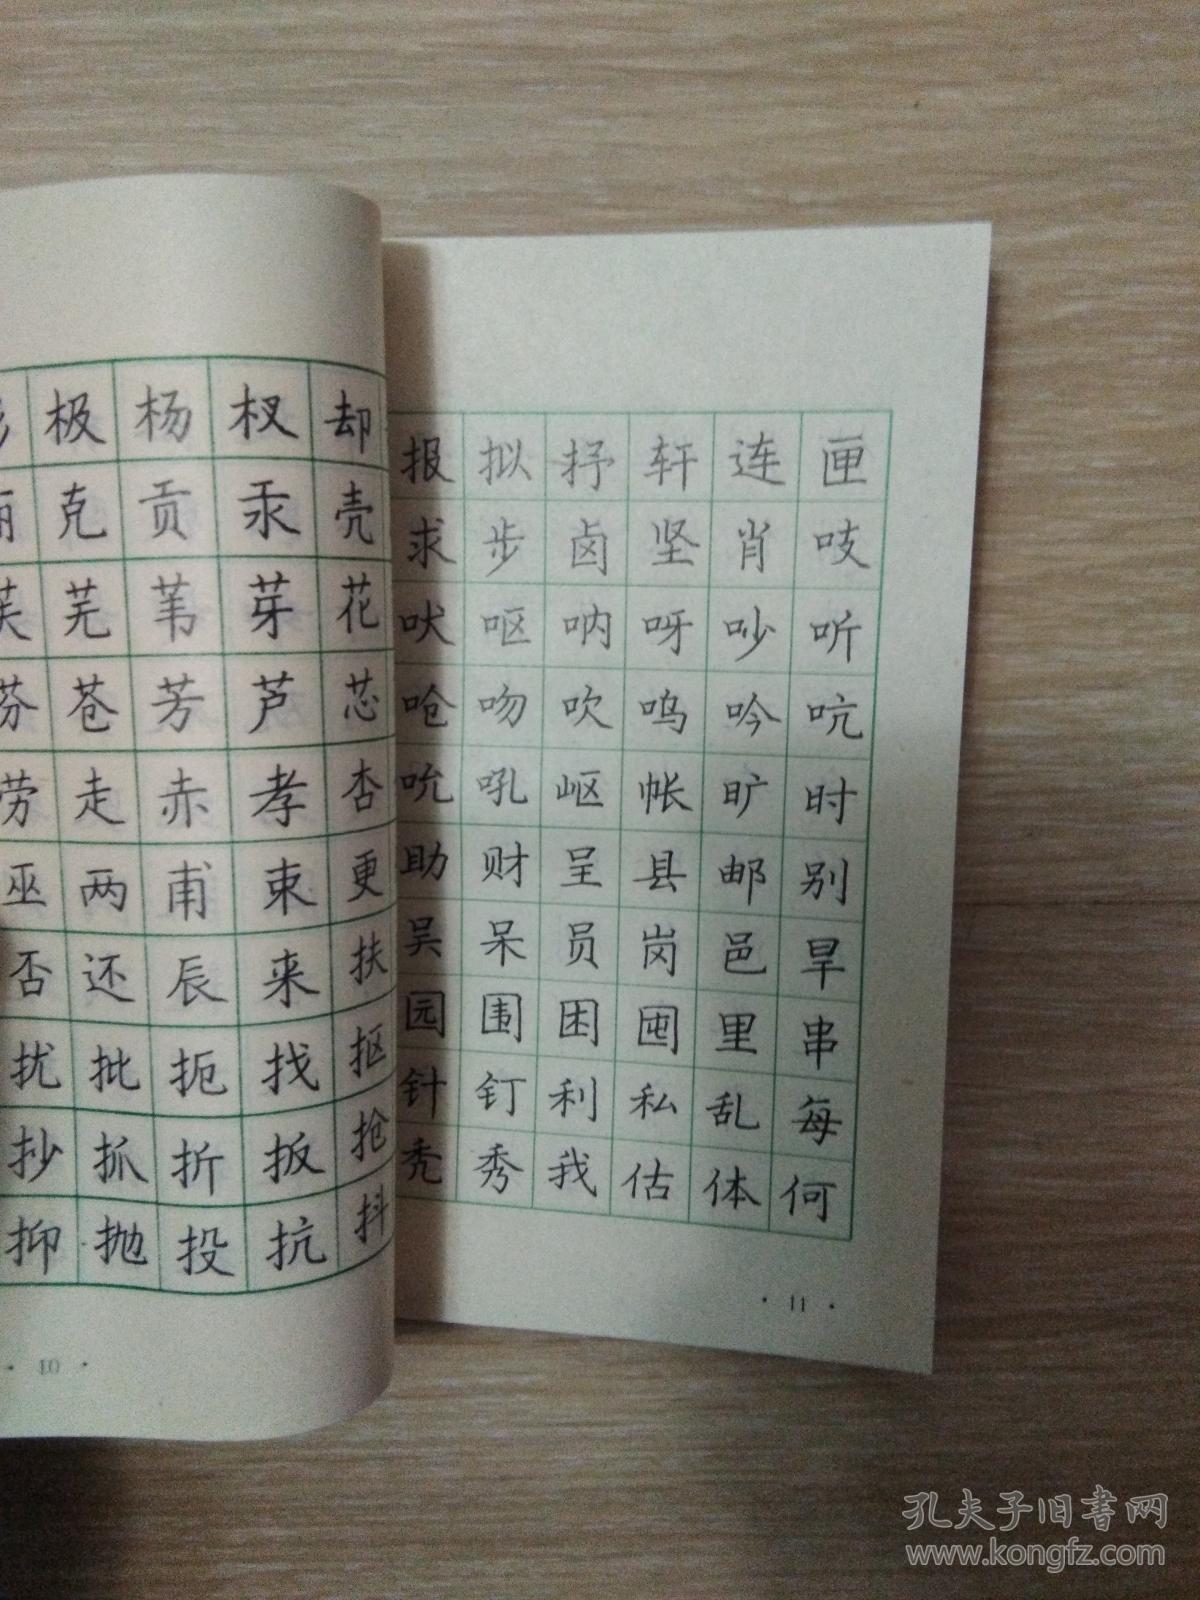 极 杨 杈 却
克 贡 汞 壳
芜 苇 芽 花
芬 苍 芳 芦 芯
劳 走 赤 孝 杏
巫 两 甫 束 更
否 还 辰 来 扶
扰 批 扼 找 抠
抄 抓 折 扳 抢
抑 抛 投 抗 抖
· 10 ·
报 拟 抒 轩 连 匣
求 步 卤 坚 肖 吱
吠 呕 呐 呀 吵 听
呛 吻 吹 呜 吟 吭
吮 吼 岖 帐 旷 时
助 财 呈 县 邮 别
吴 呆 员 岗 邑 旱
园 围 困 囤 里 串
针 钉 利 私 乱 每
秃 秀 我 估 体 何
· 11 ·
孔夫子旧书网
www.kongfz.com